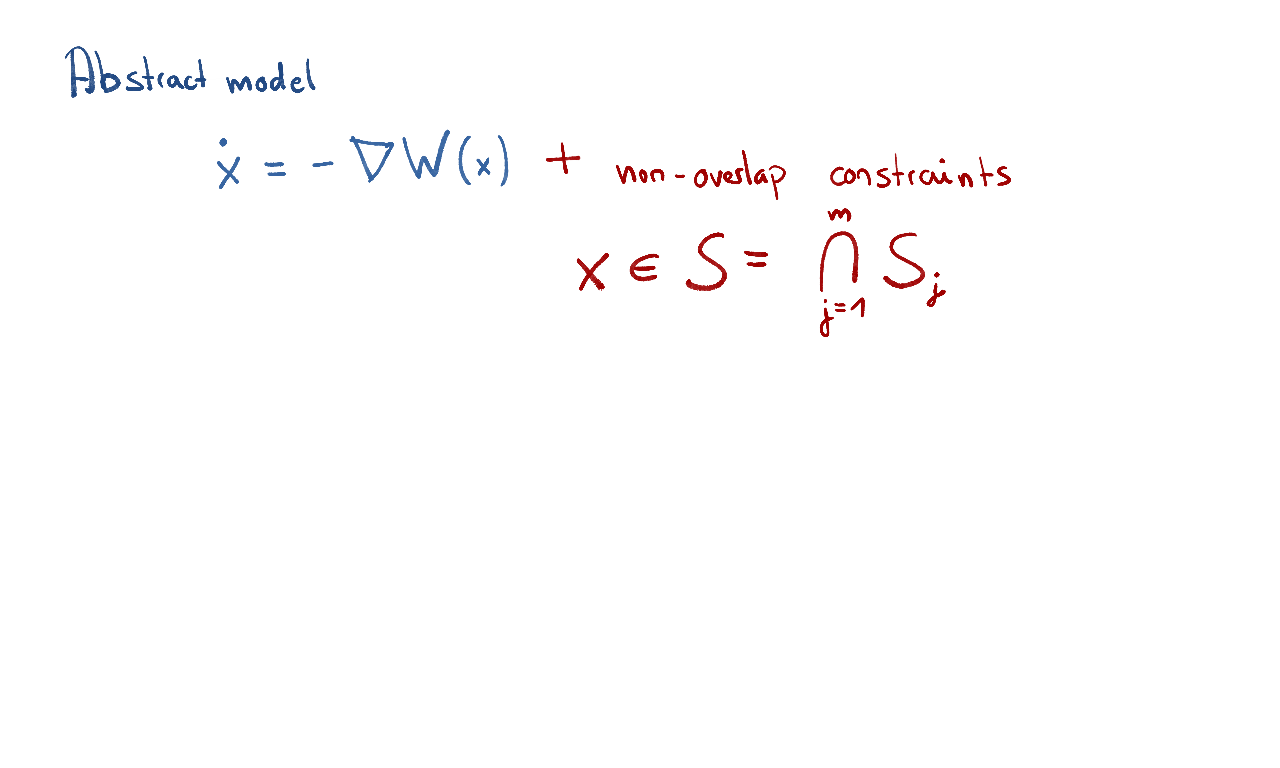 Abstract model
ẋ = - ∇W(x) + non-overlap constraints
x ∈ S = ⋂_{j=1}^{m} S_j